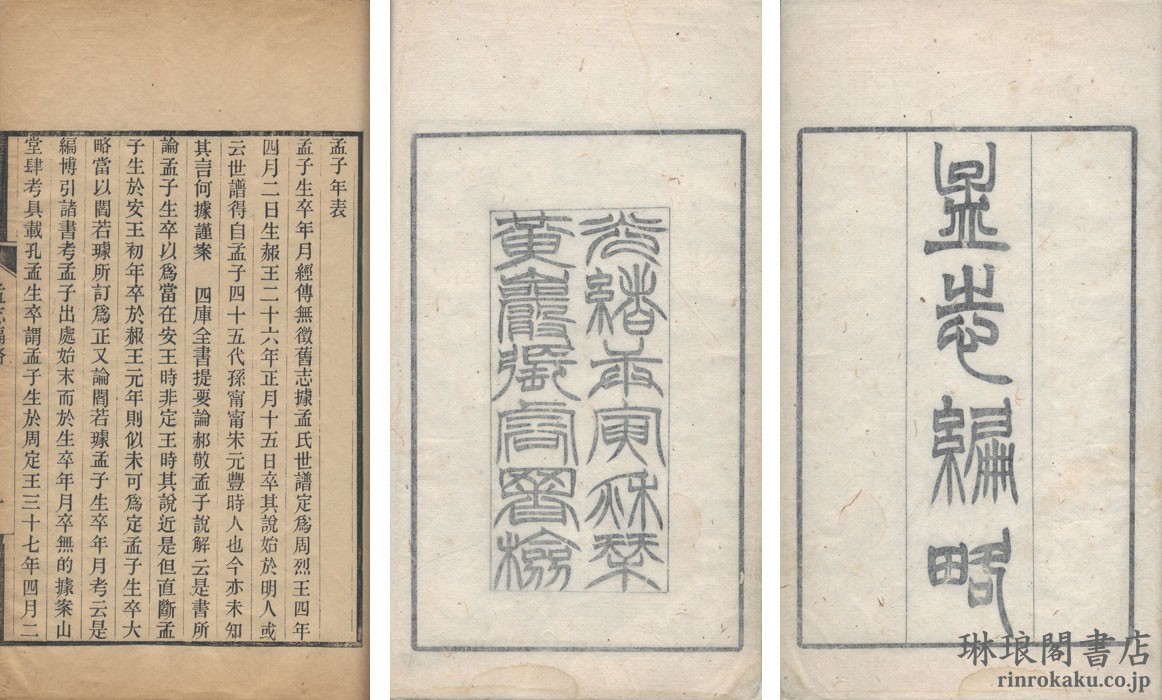 孟志編略
光緒庚寅秋栞
孟子年表
孟子生卒年月經傳無徵舊志據孟氏世譜定爲周烈王四年
四月二日生赧王二十六年正月十五日卒其說始於明人或
云世譜得自孟子四十五代孫甯甯宋元豐時人也今亦未知
其言何據謹案　四庫全書提要論郝敬孟子說解云是書所
論孟子生卒以爲當在安王時非定王時其說近是但直斷孟
子生於安王初年卒於赧王元年則似未可爲定孟子生卒大
略當以閻若璩所訂爲正又論閻若璩孟子生卒年月考云是
編博引諸書考孟子出處始末而於生卒年月卒無的據案山
堂肆考具載孔孟生卒謂孟子生於周定王三十七年四月二
孟志編略
琳琅閣書店
rinrokaku.co.jp